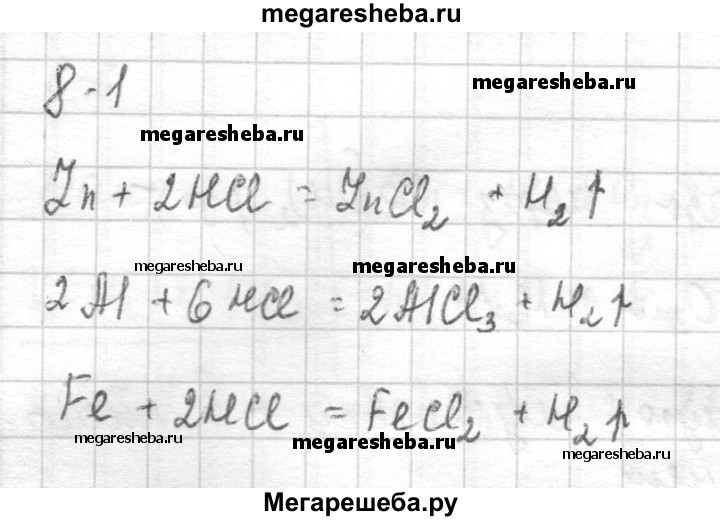 megaresheba.ru
8-1
megaresheba.ru
megaresheba.ru
Zn + 2HCl = ZnCl₂ + H₂↑
megaresheba.ru
megaresheba.ru
2Al + 6HCl = 2AlCl₃ + H₂↑
Fe + 2HCl = FeCl₂ + H₂↑
megaresheba.ru
megaresheba.ru
megaresheba.ru
Мегарешеба.ру